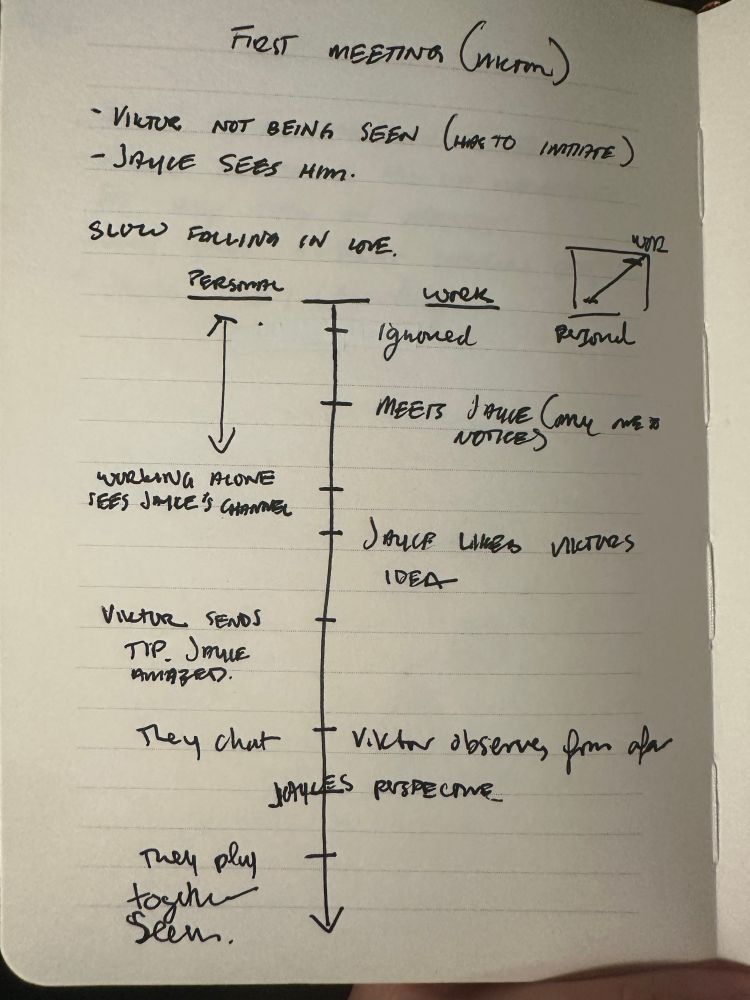 FIRST MEETING (VIKTOR)
- VIKTOR NOT BEING SEEN (HAS TO INITIATE)
- JAYCE SEES HIM.
SLOW FALLING IN LOVE.
WORK
PERSONAL
WORK
Personal
Ignored
MEETS JAYCE (only one
NOTICES
WORKING ALONE
SEES JAYCE'S CHANNEL
JAYCE LIKES VIKTORS
IDEA
VIKTOR SENDS
TIP. JAYCE
AMAZED.
They chat
Viktor observes from afar
JAYCES PERSPECTIVE
They play
together
Seen.